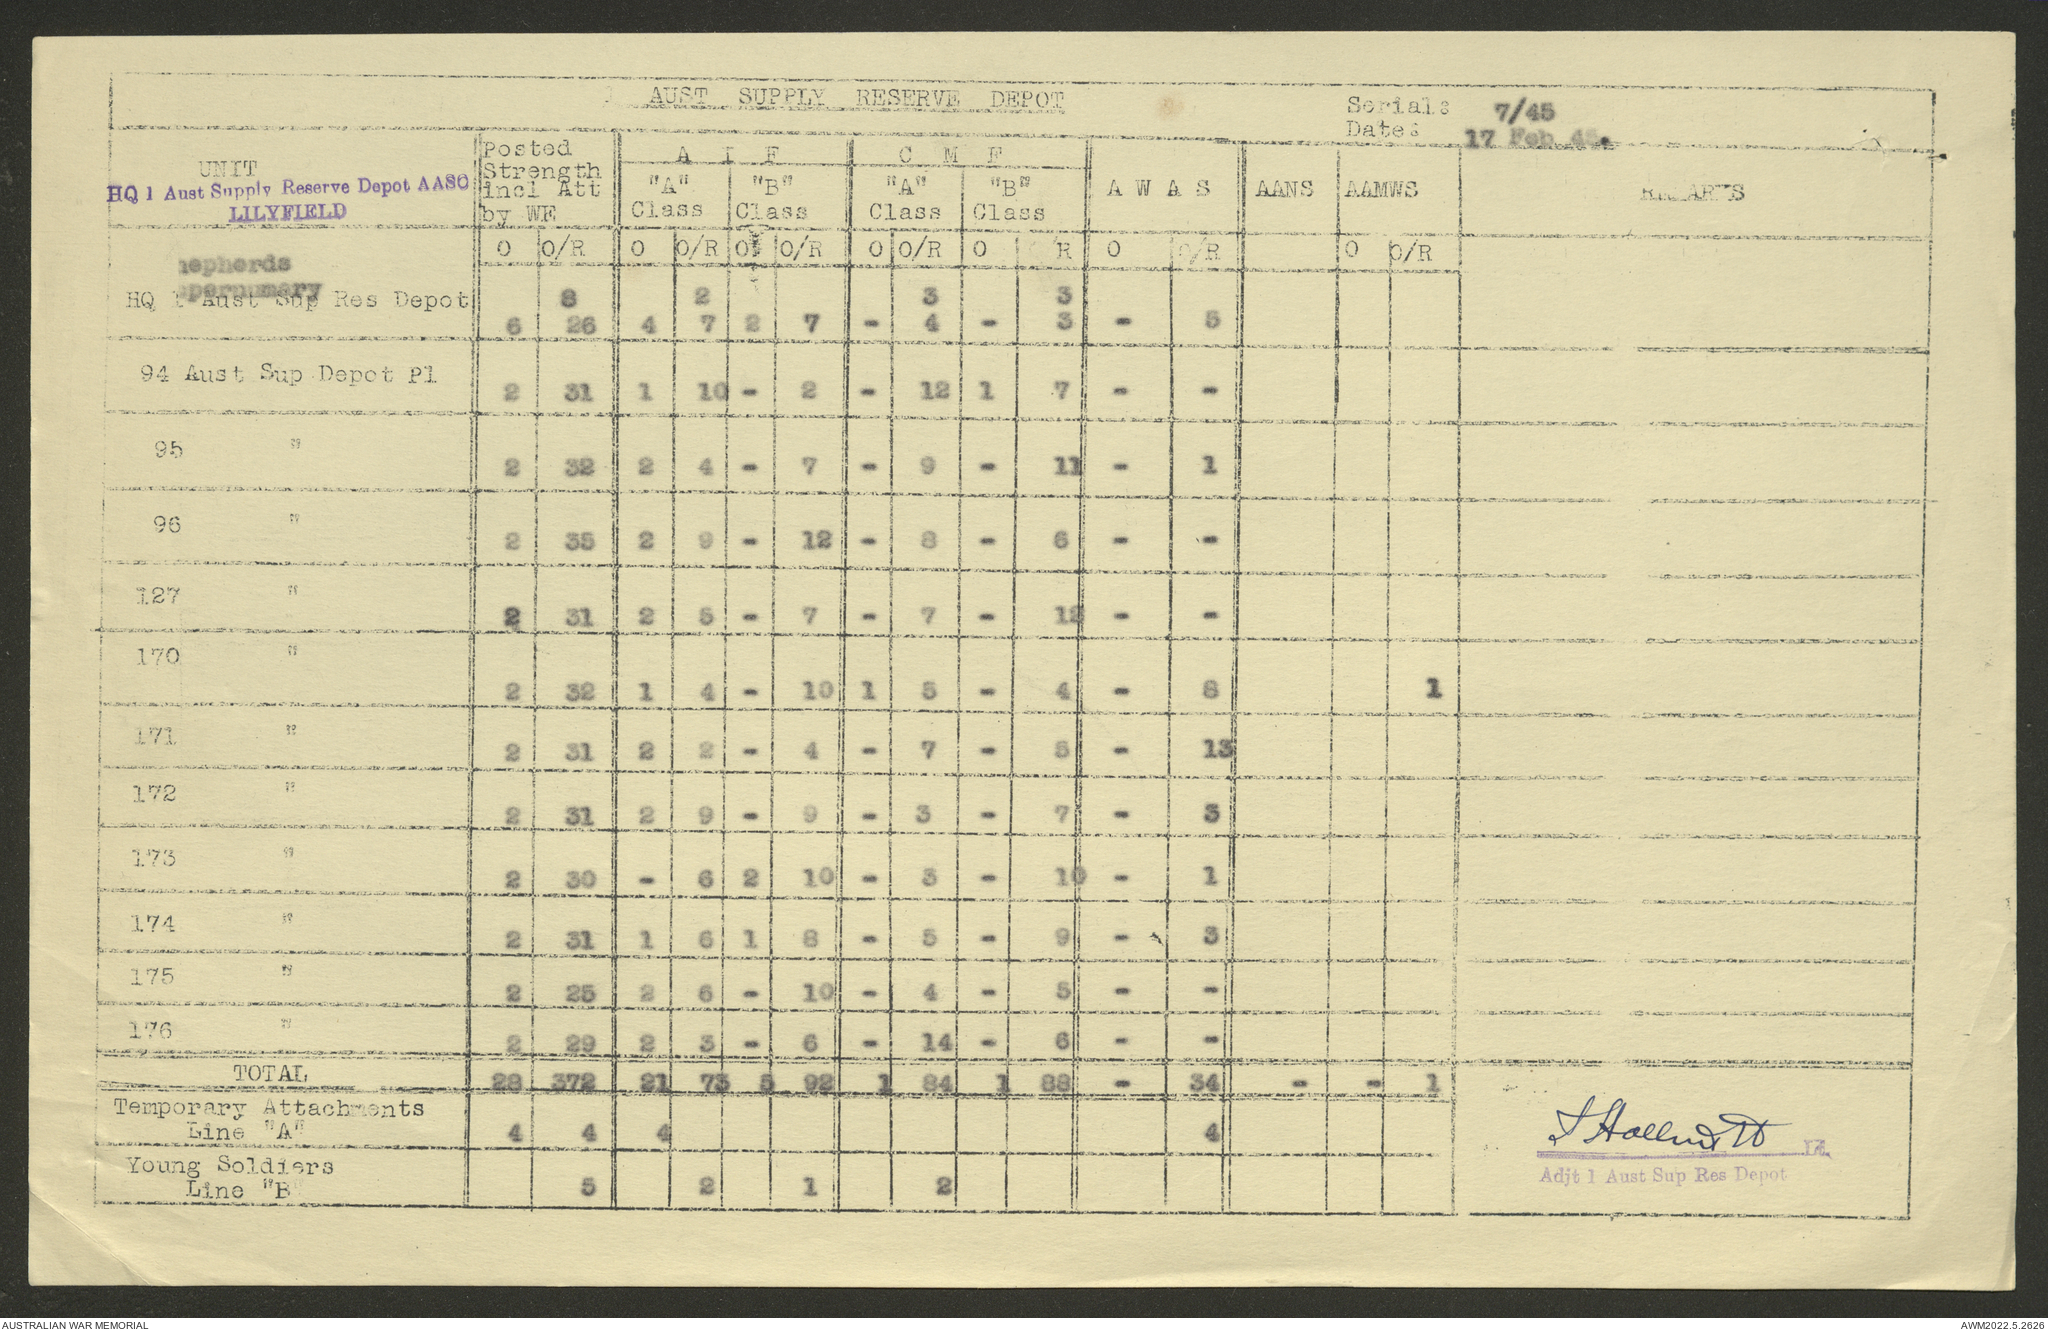 1 AUST SUPPLY RESERVE DEPOT
Serial: 7/45
Date: 17 Feb 45.
UNIT
HQ 1 Aust Supply Reserve Depot AASC
LILYFIELD
Posted Strength incl Att by WE
A I F
C M F
"A" Class
"B" Class
"A" Class
"B" Class
A W A S
AANS
AAMWS
REMARKS
O O/R O O/R O O/R O O/R O /R O O/R O O/R
hepherds
pernumary 8 2 3 3
HQ 1 Aust Sup Res Depot 6 26 4 7 2 7 - 4 - 3 - 5
94 Aust Sup Depot Pl 2 31 1 10 - 2 - 12 1 7 - -
95 " 2 32 2 4 - 7 - 9 - 11 - 1
96 " 2 35 2 9 - 12 - 8 - 6 - -
127 " 2 31 2 5 - 7 - 7 - 12 - -
170 " 2 32 1 4 - 10 1 5 - 4 - 8 1
171 " 2 31 2 2 - 4 - 7 - 5 - 13
172 " 2 31 2 9 - 9 - 3 - 7 - 3
173 " 2 30 - 6 2 10 - 3 - 10 - 1
174 " 2 31 1 6 1 8 - 5 - 9 - 3
175 " 2 25 2 6 - 10 - 4 - 5 - -
176 " 2 29 2 3 - 6 - 14 - 6 - -
TOTAL 28 372 21 73 5 92 1 84 1 88 - 34 - - 1
Temporary Attachments
Line "A" 4 4 4 4
Young Soldiers
Line "B" 5 2 1 2
Lt.
Adjt 1 Aust Sup Res Depot
AUSTRALIAN WAR MEMORIAL
AWM2022.5.2626